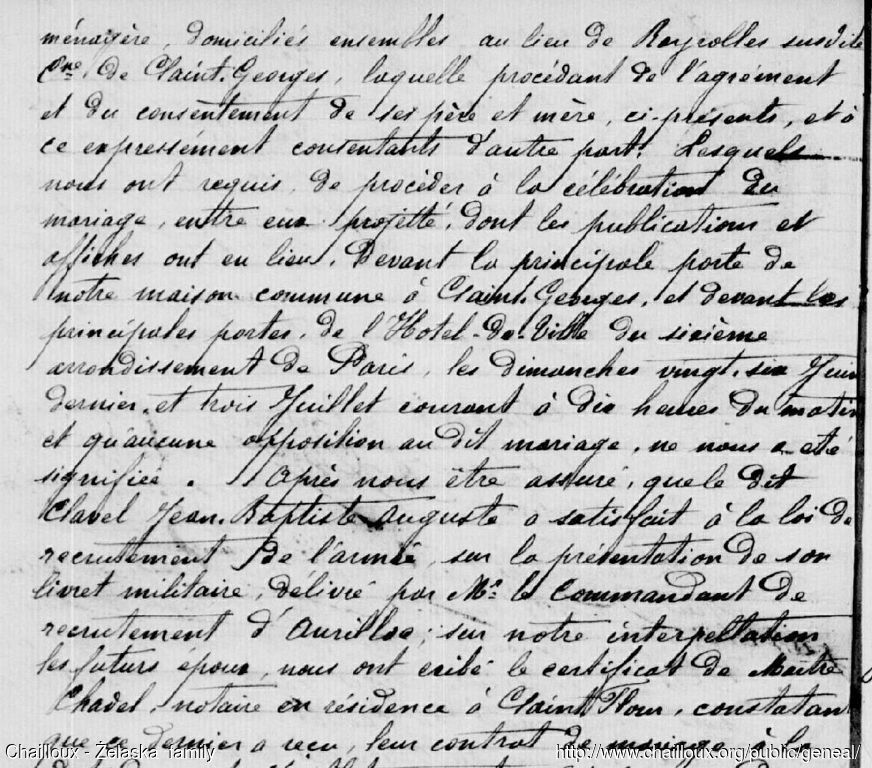 ménagère, domiciliés ensembles au lieu de Reyrolles susdite
Cne, de Saint-Georges, laquelle procédant de l'agrément
et du consentement de ses père et mère, ci-présents, et à
ce expressément consentants d'autre part. Lesquels
nous ont requis, de procéder à la célébration du
mariage, enttre eux projetté, dont les publications et
affiches ont eu lieu, Devant la principale porte de
notre maison commune à Saint-Georges, et devant les
principales portes, de l'Hotel-de-Ville du sixième
arrondissement de Paris, les dimanches vingt-six Juin
dernier, et trois Juillet courant à dix heures du matin
et qu'aucune opposition au dit mariage, ne nous a été
signifiée. Après nous être assuré, que le dit
Clavel Jean-Baptiste Auguste a satisfait à la loi de
recrutement de l'armée, sur la présentation de son
livret militaire, délivré par Mr le Commandant de
recrutement d'Aurillac; sur notre interpellation
les futurs époux, nous ont exibé le certificat de Maître
Chadel, notaire en résidence à Saint Flour, constatant
que ce dernier a reçu, leur contrat de mariage, à la
Chailloux - Zelaska family
http://www.chailloux.org/public/geneal/